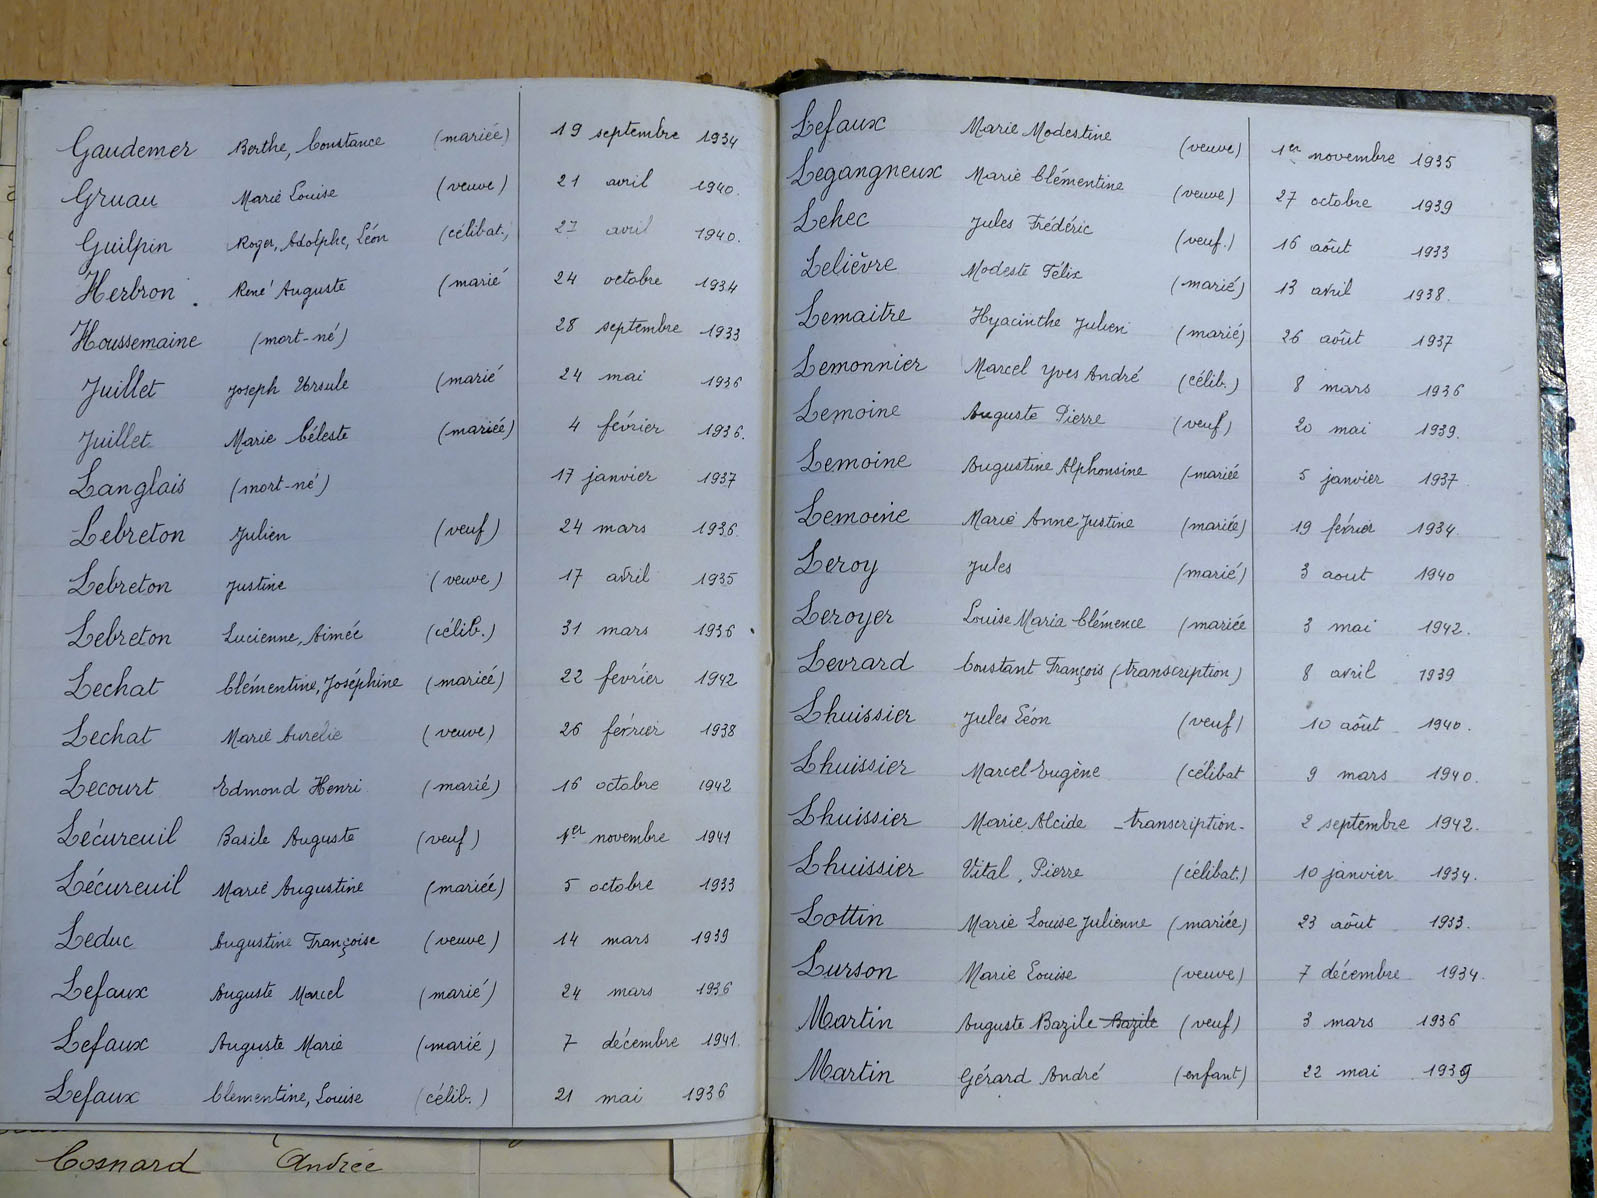 Gaudemer Berthe, Constance (mariée) 19 septembre 1934
Gruau Marie Louise (veuve) 21 avril 1940.
Guilpin Roger, Adolphe, Léon (célibat.) 27 avril 1940.
Herbron René Auguste (marié 24 octobre 1934
Houssemaine (mort-né) 28 septembre 1933
Juillet Joseph Ursule (marié 24 mai 1936
Juillet Marie Céleste (mariée) 4 février 1936.
Langlais (mort-né) 17 janvier 1937
Lebreton Julien (veuf) 24 mars 1936
Lebreton Justine (veuve) 17 avril 1935
Lebreton Lucienne, Aimée (célib.) 31 mars 1936
Lechat Clémentine, Joséphine (mariée) 22 février 1942
Lechat Marie Aurélie (veuve) 26 février 1938
Lecourt Edmond Henri (marié) 16 octobre 1942
Lécureuil Basile Auguste (veuf) 1er novembre 1941
Lécureuil Marie Augustine (mariée) 5 octobre 1933
Leduc Augustine Françoise (veuve) 14 mars 1939
Lefaux Auguste Marcel (marié) 24 mars 1936
Lefaux Auguste Marie (marié) 7 décembre 1941.
Lefaux Clementine, Louise (célib.) 21 mai 1936
Cosnard Andrée
Lefaux Marie Modestine (veuve) 1er novembre 1935
Legangneux Marie Clémentine (veuve) 27 octobre 1939
Lehec Jules Frédéric (veuf.) 16 août 1933
Lelièvre Modeste Félix (marié) 13 avril 1938.
Lemaitre Hyacinthe Julien (marié) 26 août 1937
Lemonnier Marcel Yves André (célib.) 8 mars 1936
Lemoine Auguste Pierre (veuf) 20 mai 1939.
Lemoine Augustine Alphonsine (mariée 5 janvier 1937
Lemoine Marie Anne Justine (mariée) 19 février 1934.
Leroy Jules (marié) 3 aout 1940
Leroyer Louise Maria Clémence (mariée 3 mai 1942.
Levrard Constant François (transcription) 8 avril 1939
Lhuissier Jules Léon (veuf) 10 août 1940.
Lhuissier Marcel Eugène (célibat 9 mars 1940.
Lhuissier Marie Alcide -transcription- 2 septembre 1942.
Lhuissier Vital, Pierre (célibat.) 10 janvier 1934.
Lottin Marie Louise Julienne (mariée) 23 août 1933.
Lurson Marie Louise (veuve) 7 décembre 1934.
Martin Auguste Bazile Bazile (veuf) 3 mars 1936
Martin Gérard André (enfant) 22 mai 1939